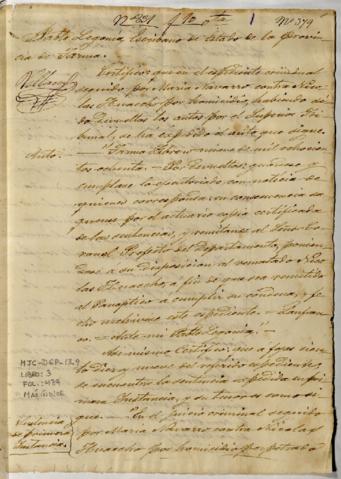 Nº 379
Pablo Legonía, Escribano de Estado de la provin
cia de Tarma.
Certifico: que en el expediente criminal
seguido por María Navarro contra Nico
las Huacho por homicidio, habiendo si
do devueltos los autos por el Superior Tri
bunal, se ha expedido el auto que sigue.
Auto.— "Tarma, Febrero
de mil ochocien
tos ochenta.— Por devueltos: guárdese y
cúmplase lo ejecutoriado con noticia de
quienes corresponda: en consecuencia sá
quense por el actuario copia certificada
de las sentencias, y remítanse al Señor Co
ronel Prefecto del Departamento, ponién
dose a su disposición al rematado Nico
las Huacho, a fin de que sea remitido
al Panóptico a cumplir su condena, y fe
cho archívese este expediente.—
— Ante mí Pablo Legonía."—
Así mismo certifico: que a fojas cien
del referido expediente,
se encuentra la sentencia expedida en pri
mera Instancia, y su tenor es como si
gue.— "En el juicio criminal seguido
por María Navarro contra Nicolas
Huacho por homicidio perpetrado
MJC-DEP-13.9
LIBRO: 3
FOL.: 489
Sentencia
de primera
Instancia.